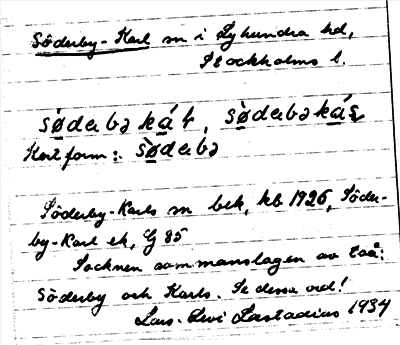 Söderby-Karl sn i Lyhundra hd,
Stockholms l.
söderbə ka
Kortform: södebə
Söderby-Karls sn bek, kb 1926, Söder-
by-Karl ek, G 85
Socknen sammanslagen av två:
Söderby och Karls. Se dessa ord!
Lars-Levi Læstadius 1934